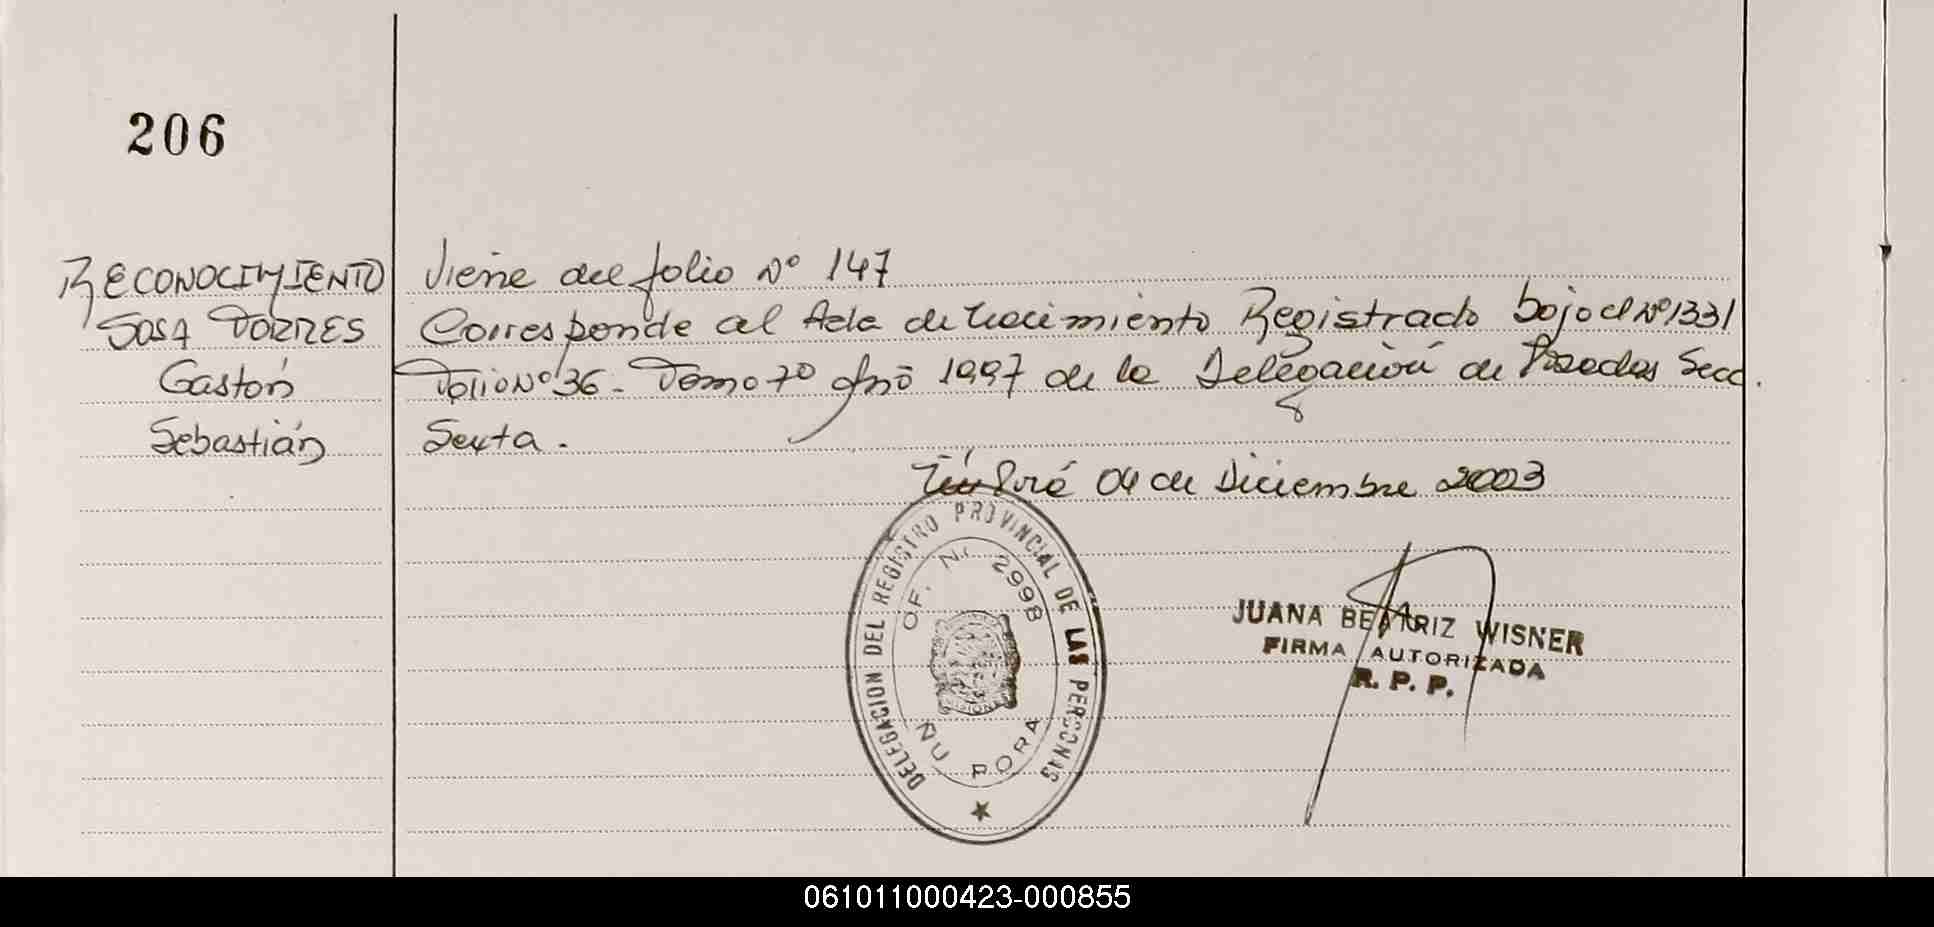 206
RECONOCIMIENTO
SOSA TORRES
Gastón
Sebastián
Viene del folio Nº 147
Corresponde al Acta de Nacimiento Registrado bajo el Nº 1331
Folio Nº 36 - Tomo 7º Año 1997 de la Delegación de Posadas Secc.
Sexta.
Puré 04 de Diciembre 2003
DELEGACION DEL REGISTRO PROVINCIAL DE LAS PERSONAS
OF. N. 2998
MISIONES
ÑU PORA
JUANA BEATRIZ WISNER
FIRMA AUTORIZADA
R. P. P.
061011000423-000855